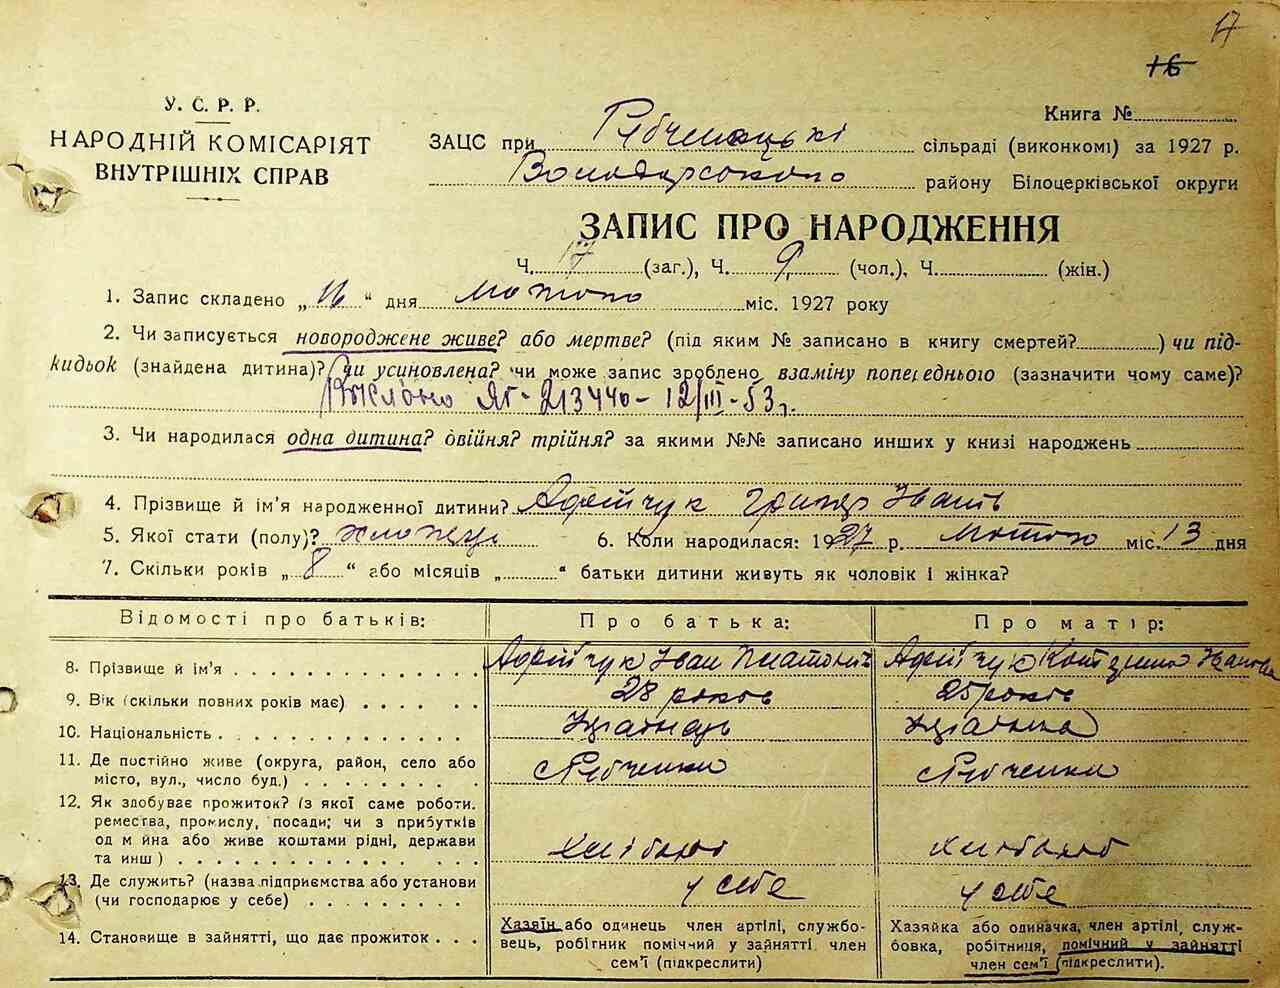 17
16
У. С. Р. Р.
НАРОДНІЙ КОМІСАРІЯТ
ВНУТРІШНІХ СПРАВ
Книга №
ЗАЦС при сільраді (виконкомі) за 1927 р.
Володарського району Білоцерківської округи
ЗАПИС ПРО НАРОДЖЕННЯ
Ч. 17 (заг.), Ч. 9 (чол.), Ч. (жін.)
1. Запис складено „16“ дня лютого міс. 1927 року
2. Чи записується новороджене живе? або мертве? (під яким № записано в книгу смертей?) чи під-
кидьок (знайдена дитина)? Чи усиновлена? чи може запис зроблено взаміну попереднього (зазначити чому саме)?
ЯГ-213440-12/III-53 г.
3. Чи народилася одна дитина? двійня? трійня? за якими №№ записано инших у книзі народжень
4. Прізвище й ім'я народженої дитини? Іванів
5. Якої стати (полу)? хлопець 6. Коли народилася: 1927 р. лютого міс. 13 дня
7. Скільки років „8“ або місяців „ “ батьки дитини живуть як чоловік і жінка?
Відомості про батьків: Про батька: Про матір:
8. Прізвище й ім'я Іван Платонів
9. Вік (скільки повних років має) 28 років 25 років
10. Національність
11. Де постійно живе (округа, район, село або
місто, вул., число буд.) Рябченки Рябченки
12. Як здобуває прожиток? (з якої саме роботи.
ремества, промислу, посади; чи з прибутків
од м йна або живе коштами рідні, держави
та инш)
13. Де служить? (назва підприємства або установи
(чи господарює у себе) у себе у себе
14. Становище в зайнятті, що дає прожиток
Хазяїн або одинець член артілі, службо-
вець, робітник помічний у зайнятті член
сем'ї (підкреслити)
Хазяйка або одиначка, член артілі, служ-
бовка, робітниця, помічний у зайнятті
член сем'ї (підкреслити).